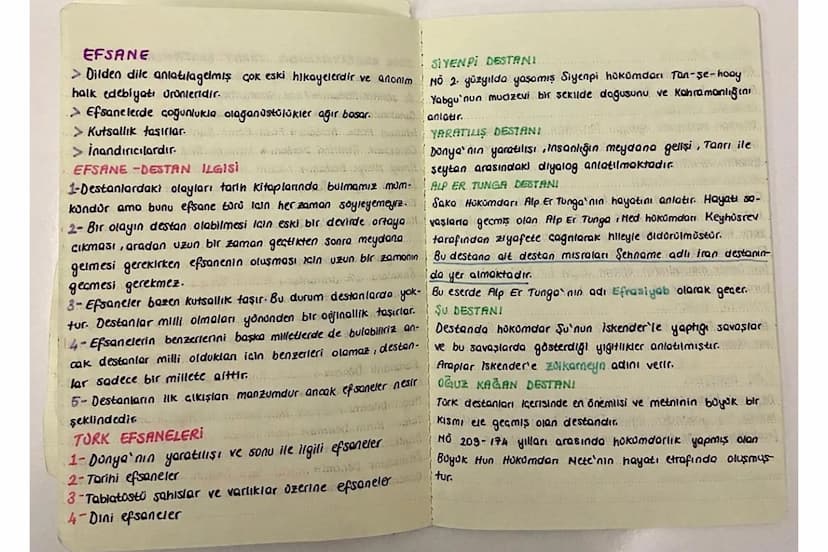 EFSANE
> Dilden dile anlatılagelmiş çok eski hikayelerdir ve anonim
halk edebiyatı ürünleridir.
> Efsanelerde çoğunlukla olağanüstülükler ağır basar.
> Kutsallık taşırlar.
> İnandırıcılardır.
EFSANE-DESTAN İLGİSİ
1-Destanlardaki olayları tarih kitaplarında bulmamız müm-
kündür ama bunu efsane türü için her zaman söyleyemeyiz.
2- Bir olayın destan olabilmesi için eski bir devirde ortaya
çıkması, aradan uzun bir zaman geçtikten sonra meydana
gelmesi gerekirken efsanenin oluşması için uzun bir zamanın
geçmesi gerekmez.
3- Efsaneler bazen kutsallık taşır. Bu durum destanlarda yok-
tur. Destanlar milli olmaları yönünden bir orjinallik taşırlar.
4- Efsanelerin benzerlerini başka milletlerde de bulabiliriz an-
cak destanlar milli oldukları için benzerleri olamaz, destan-
lar sadece bir millete aittir.
5- Destanların ilk çıkışları manzumdur ancak efsaneler nesir
şeklindedir.
TÜRK EFSANELERİ
1- Dünya'nın yaratılışı ve sonu ile ilgili efsaneler
2- Tarihi efsaneler
3- Tabiatüstü şahıslar ve varlıklar üzerine efsaneler
4- Dini efsaneler
SİYENPİ DESTANI
MÖ 2. yüzyılda yaşamış Siyenpi hükümdarı Tan-şe-hoay
Yabgu'nun mucizevi bir şekilde doğuşunu ve Kahramanlığını
anlatır.
YARATILIŞ DESTANI
Dünya'nın yaratılışı, insanlığın meydana gelişi, Tanrı ile
şeytan arasındaki diyalog anlatılmaktadır.
ALP ER TUNGA DESTANI
Saka Hükümdarı Alp Er Tunga'nın hayatını anlatır. Hayatı sa-
vaşlarla geçmiş olan Alp Er Tunga, Med hükümdarı Keyhüsrev
tarafından ziyafete çağrılarak hileyle öldürülmüştür.
Bu destana ait destan mısraları Şehname adlı İran destanın-
da yer almaktadır.
Bu eserde Alp Er Tunga'nın adı Efrasiyab olarak geçer.
ŞU DESTANI
Destanda hükümdar Şu'nun İskender'le yaptığı savaşlar
ve bu savaşlarda gösterdiği yiğitlikler anlatılmıştır.
Araplar İskender'e zülkarneyn adını verir.
OĞUZ KAĞAN DESTANI
Türk destanları içerisinde en önemlisi ve metninin büyük bir
kısmı ele geçmiş olan destandır.
MÖ 209-174 yılları arasında hükümdarlık yapmış olan
Büyük Hun Hükümdarı Mete'nin hayatı etrafında oluşmuş-
tur.